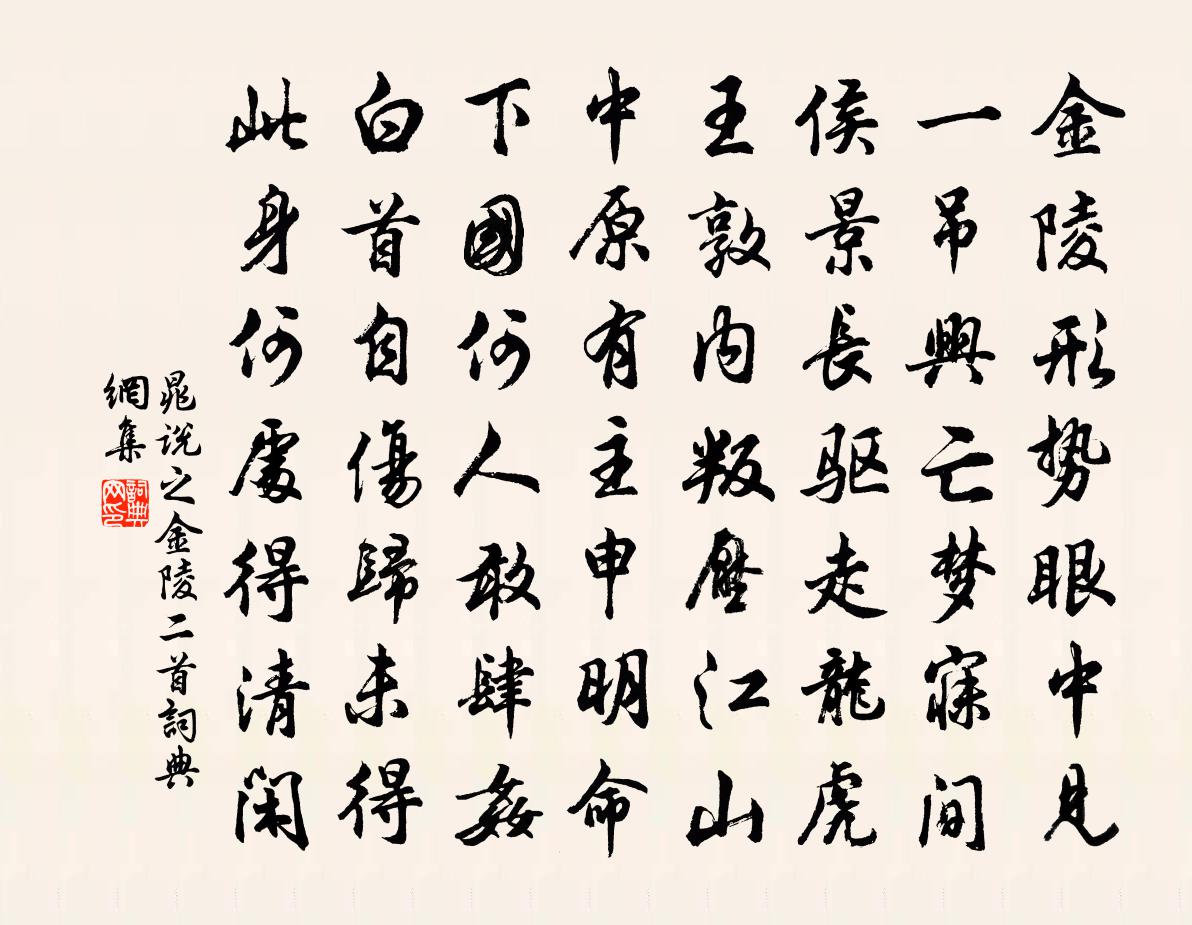 金陵形势眼中見
一吊興亡梦寐间
侯景長驱走龍虎
王敦内叛壓江山
中原有主申明命
下國何人敢肆姦
白首自傷歸未得
此身何處得清闲
晁说之金陵二首詞典
網集
詞典网印